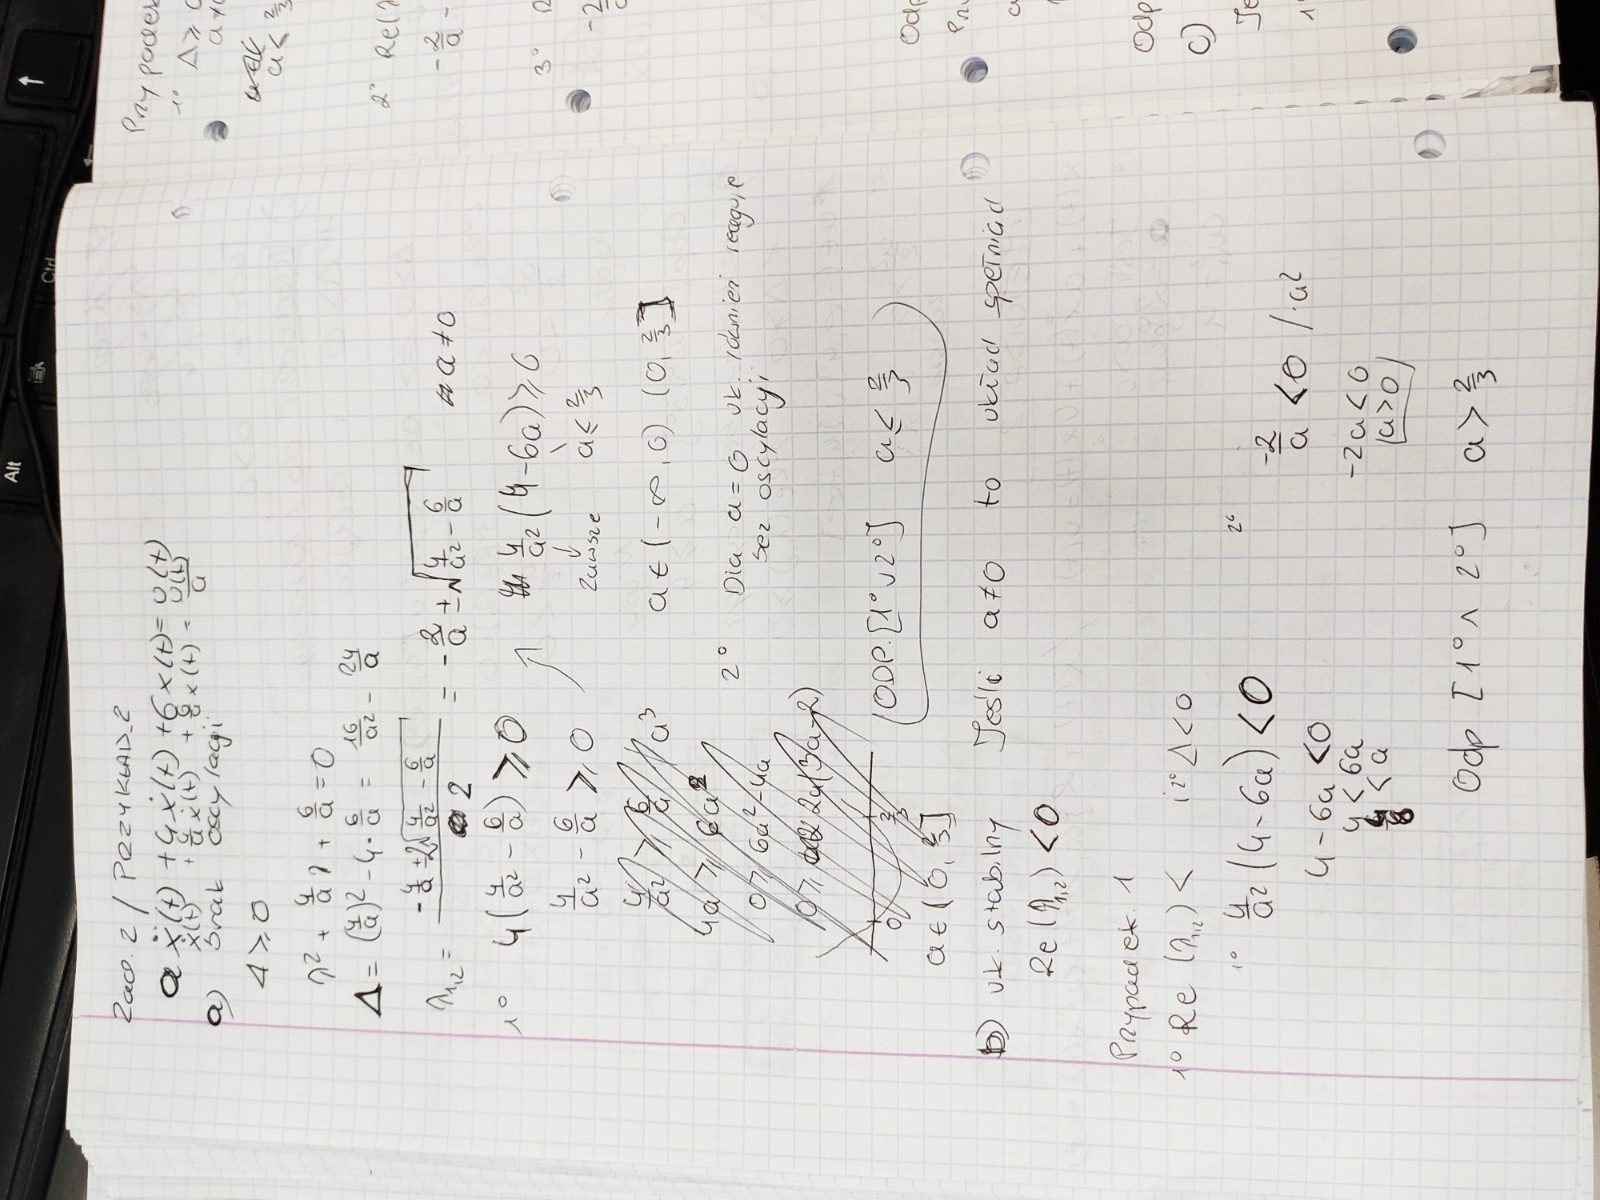 Zad. 2 / PRZYKŁAD_2
a ẍ(t) + 4·ẋ(t) + 6x(t) = u(t)
ẍ(t) + 4/a ẋ(t) + 6/a x(t) = u(t)/a
a) Brak oscylacji
Δ ≥ 0
λ² + 4/a λ + 6/a = 0
Δ = (4/a)² - 4·6/a = 16/a² - 24/a
λ₁,₂ = (-4/a ± 2√(4/a² - 6/a))/2 = -2/a ± √(4/a² - 6/a) a≠0
1° 4(4/a² - 6/a) ≥ 0
4/a² (4-6a) ≥ 0
4/a² - 6/a ≥ 0
zawsze a ≤ 2/3
4/a² ≥ 6/a /a³
4a ≥ 6a²
0 ≥ 6a² - 4a
0 ≥ 2a(3a-2)
0 2/3
a ∈ (0, 2/3]
a ∈ (-∞, 0) (0, 2/3]
2° Dla a = 0 uk. również reaguje
bez oscylacji
ODP. [1° ∪ 2°] a ≤ 2/3
b) uk. stabilny Jeśli a≠0 to układ spełniał
Re(λ₁,₂) < 0
Przypadek 1
1° Re(λ₁,₂) < i 2° Δ < 0
1° 4/a² (4-6a) < 0
4 - 6a < 0
4 < 6a
< a
2° -2/a < 0 /·a²
-2a < 0
a > 0
Odp [1° ∧ 2°] a > 2/3
Przypadek
1° Δ ≥
a ≤ 2/3
2° Re(λ
-2/a -
3°
-2
Odp
c)
Je
1°
Alt
Ctrl